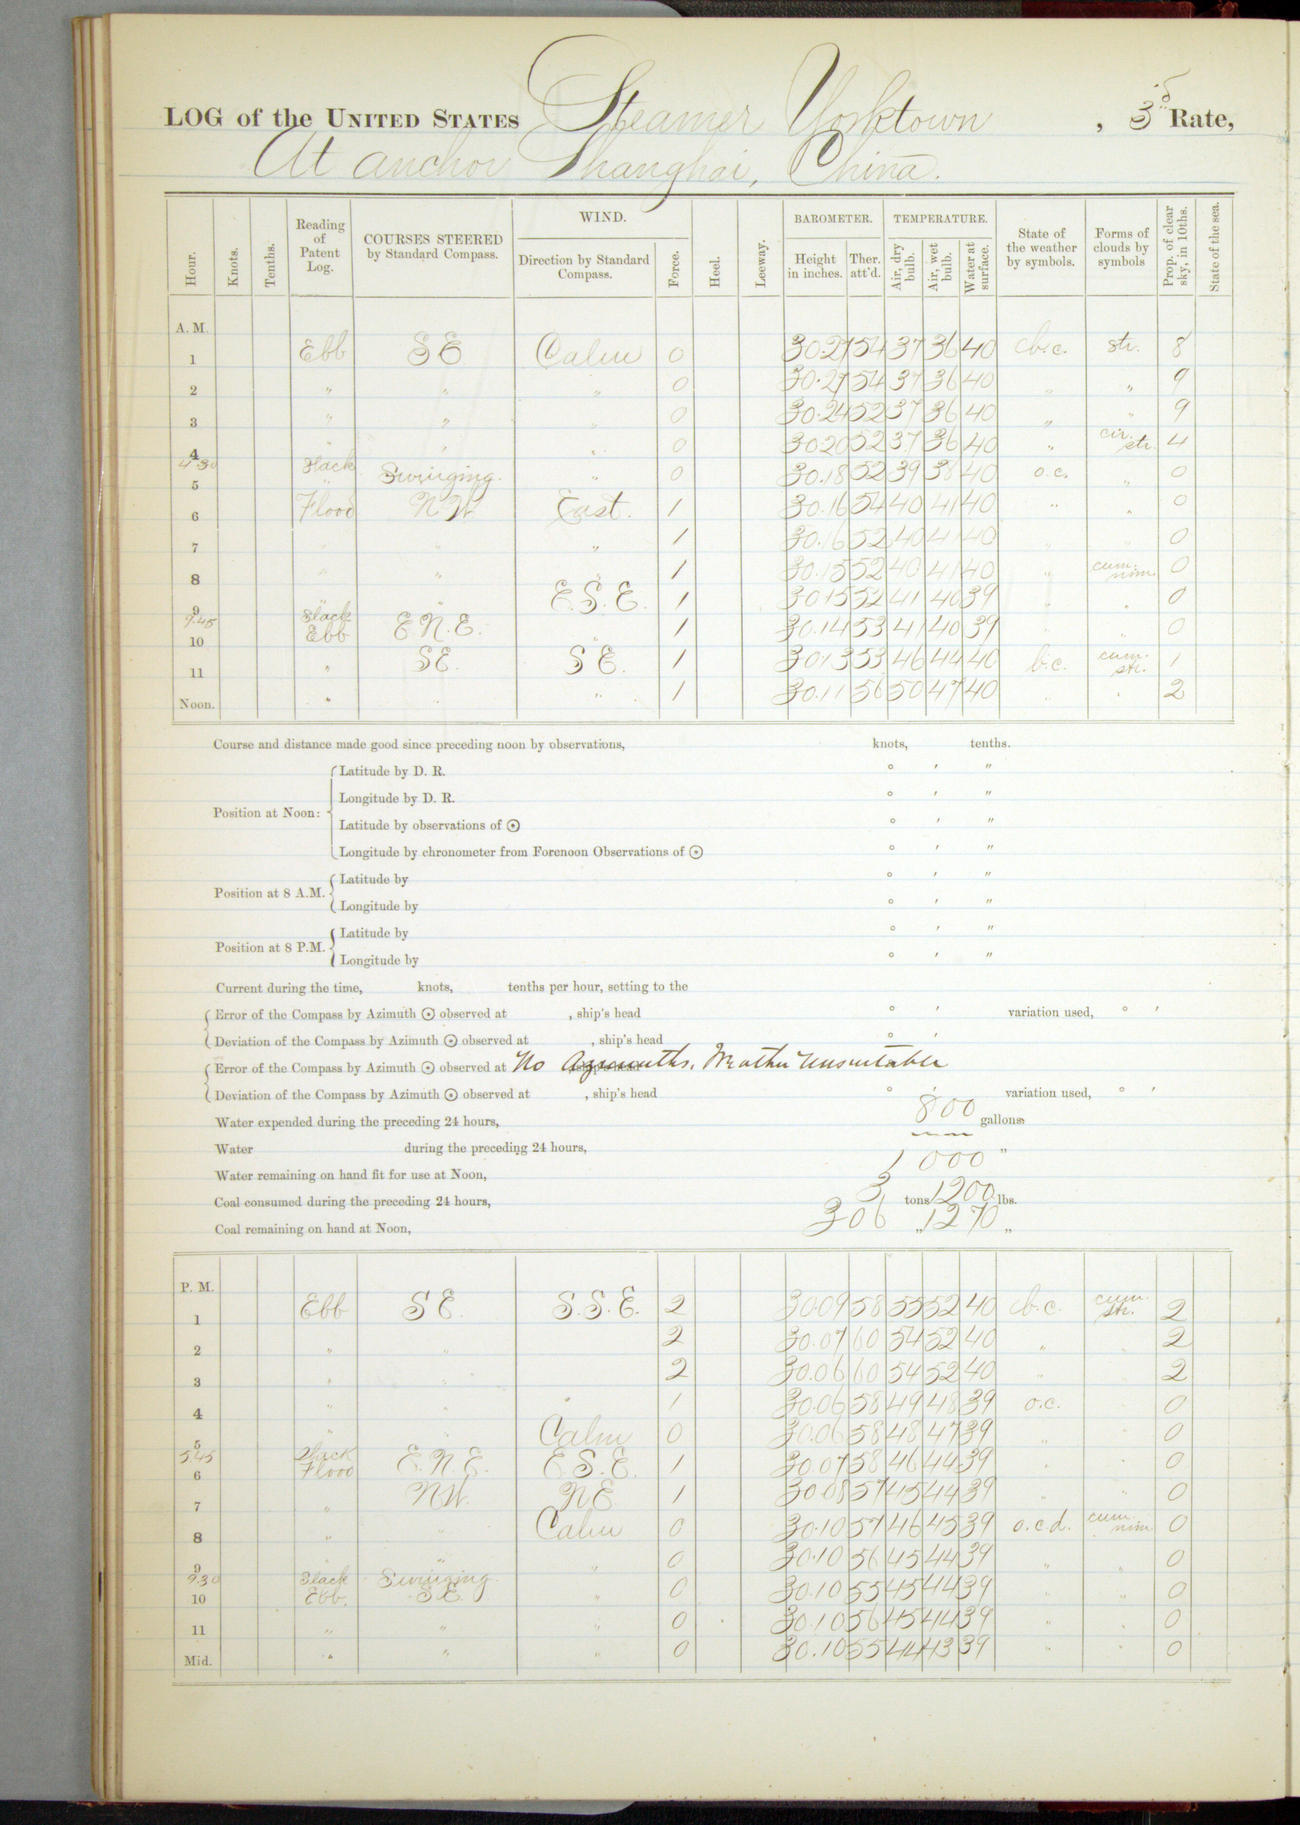 LOG of the UNITED STATES Steamer Yorktown, 3d Rate,
At anchor Shanghai, China.
Hour. Knots. Tenths. Reading of Patent Log. COURSES STEERED by Standard Compass. WIND. Direction by Standard Compass. Force. Heel. Leeway. BAROMETER. Height in inches. Ther. att'd. TEMPERATURE. Air, dry bulb. Air, wet bulb. Water at surface. State of the weather by symbols. Forms of clouds by symbols Prop. of clear sky, in 10ths. State of the sea.
A. M.
1 Ebb SE Calm 0 30.27 54 37 36 40 b.c. str. 8
2 " " " 0 30.27 54 37 36 40 " " 9
3 " " " 0 30.24 52 37 36 40 " " 9
4 " " " 0 30.20 52 37 36 40 " cir. str. 4
4.30 Slack
5 " Swinging. " 0 30.18 52 39 38 40 o.c. " 0
6 Flood N.W. East. 1 30.16 54 40 41 40 " " 0
7 " " " 1 30.16 52 40 41 40 " " 0
8 " " " 1 30.15 52 40 41 40 " cum. nim. 0
9 " " E.S.E. 1 30.15 52 41 40 39 " " 0
9.45 Slack
10 Ebb E.N.E. " 1 30.14 53 41 40 39 " " 0
11 " SE. SE. 1 30.13 53 46 44 40 b.c. cum. str. 1
Noon. " " " 1 30.11 56 50 47 40 " " 2
Course and distance made good since preceding noon by observations, knots, tenths.
Position at Noon:
Latitude by D. R. ° ′ ″
Longitude by D. R. ° ′ ″
Latitude by observations of ☉ ° ′ ″
Longitude by chronometer from Forenoon Observations of ☉ ° ′ ″
Position at 8 A.M.
Latitude by ° ′ ″
Longitude by ° ′ ″
Position at 8 P.M.
Latitude by ° ′ ″
Longitude by ° ′ ″
Current during the time, knots, tenths per hour, setting to the
Error of the Compass by Azimuth ☉ observed at , ship's head ° ′ variation used, ° ′
Deviation of the Compass by Azimuth ☉ observed at , ship's head ° ′
Error of the Compass by Azimuth ☉ observed at No Azimuths. Weather Unsuitable
Deviation of the Compass by Azimuth ☉ observed at , ship's head ° ′ variation used, ° ′
Water expended during the preceding 24 hours, 800 gallons
Water during the preceding 24 hours, "
Water remaining on hand fit for use at Noon, 1000
Coal consumed during the preceding 24 hours, 3 tons 1200 lbs.
Coal remaining on hand at Noon, 306 " 1270 "
P. M.
1 Ebb SE. S.S.E. 2 30.09 58 55 52 40 b.c. cum. str. 2
2 " " 2 30.07 60 54 52 40 " " 2
3 " " 2 30.06 60 54 52 40 " " 2
4 " " " 1 30.06 58 49 48 39 o.c. " 0
5 " " Calm 0 30.06 58 48 47 39 " " 0
5.45 Slack
6 Flood E.N.E. E.S.E. 1 30.07 58 46 44 39 " " 0
7 " NW. NE. 1 30.08 57 45 44 39 " " 0
8 " " Calm 0 30.10 57 46 45 39 o.c.d. cum. nim 0
9 " " " 0 30.10 56 45 44 39 " " 0
9.30 Slack Swinging.
10 Ebb. SE. " 0 30.10 55 45 44 39 " " 0
11 " " " 0 30.10 56 45 44 39 " " 0
Mid. " " " 0 30.10 55 44 43 39 " " 0